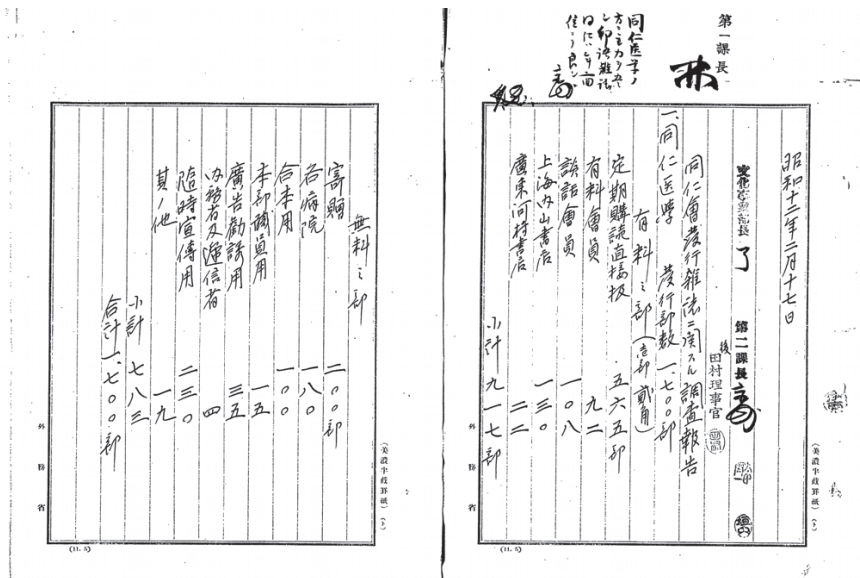 第一課長
林
同仁医学ノ
昭和十二年二月十七日
文化事業部長 了
第二課長
後
田村理事官
同仁會發行雑誌ニ関スル調査報告
一、同仁医学 發行部数 一、七〇〇部
有料之部（壱部 貳角）
定期購読直接扱 五六五部
有料會員 九二
談話會員 一〇八
上海内山書店 一三〇
廣東河村書店 二二
小計 九一七部
(美濃半截罫紙)
外務省
(11. 5)
無料之部
寄贈 二〇〇部
各病院 一八〇
合本用 一〇〇
本部職員用 一五
廣告勧誘用 三五
内務省及逓信省 四
随時宣傳用 二三〇
其ノ他 一九
小計 七八三
合計 一、七〇〇部
(美濃半截罫紙)
外務省
(11. 5)